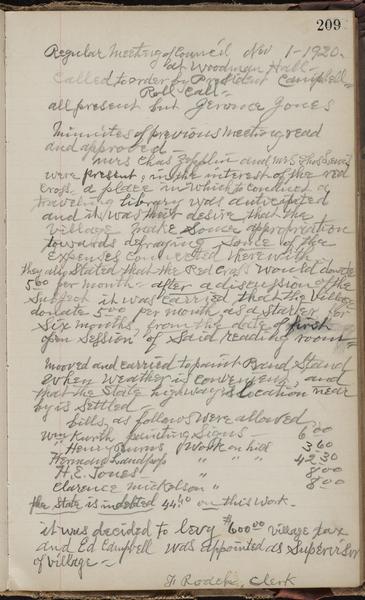 209
Regular Meeting of Council Nov 1-1920.
at Woodman Hall-
Called to order by President Campbell-
Roll Call-
all present but Jerome Jones
Minnites of previous meeting read
and approved-
Mrs Chas Zepplin and Mrs
were present, in the interest of the red
cross- a place in which to conduct a
traveling library was anticipated
and it was their desire that the
village make some appropriation
towards defraying some of the
expenses connected therewith
they also stated that the Red Cross would donate
5.00 per month- after a discussion of the
subject it was carried that the village
donate 5.00 per month as a starter for
six months, from the date of first
open session of said reading room-
mooved and carried to paint Band Stand
when weather is convenient, and
that the State highway location near
by is settled
bills as follows were allowed
Wm Kurth painting Signs 6.00
" Henry Burns Work on hill 3.60
Herman " " " 42.30
H.E. Jones " 8.00
Clarence Mickelson " 8.00
the State is indebted on this work-
it was decided to levy $600.00 village tax
and Ed Campbell was appointed as Supervisor
of village-
Roach, Clerk